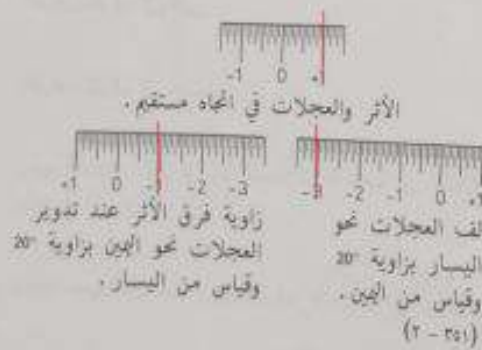 -1 0 +1
الأثر والعجلات في اتجاه مستقيم.
+1 0 -1 -2 -3
زاوية فرق الأثر عند تدوير
العجلات نحو اليمين بزاوية 20°
وقياس من اليسار.
-3 -2 -1 0 +1
لف العجلات نحو
اليسار بزاوية 20°
وقياس من اليمين.
(٣٥١ - ٢)